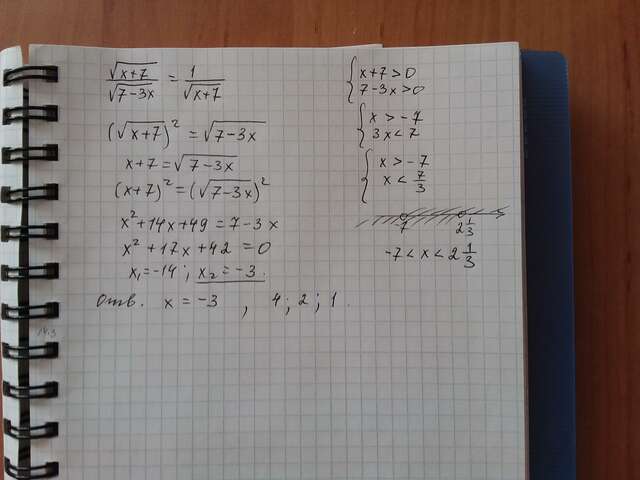 √(x+7) / √(7-3x) = 1 / √(x+7)
(√(x+7))² = √(7-3x)
x+7 = √(7-3x)
(x+7)² = (√(7-3x))²
x²+14x+49 = 7-3x
x²+17x+42 = 0
x₁=-14; x₂=-3.
Отв. x = -3 , 4; 2; 1.
{ x+7>0
7-3x>0
{ x>-7
3x<7
{ x>-7
x< 7/3
-7 2 1/3
-7<x<2 1/3